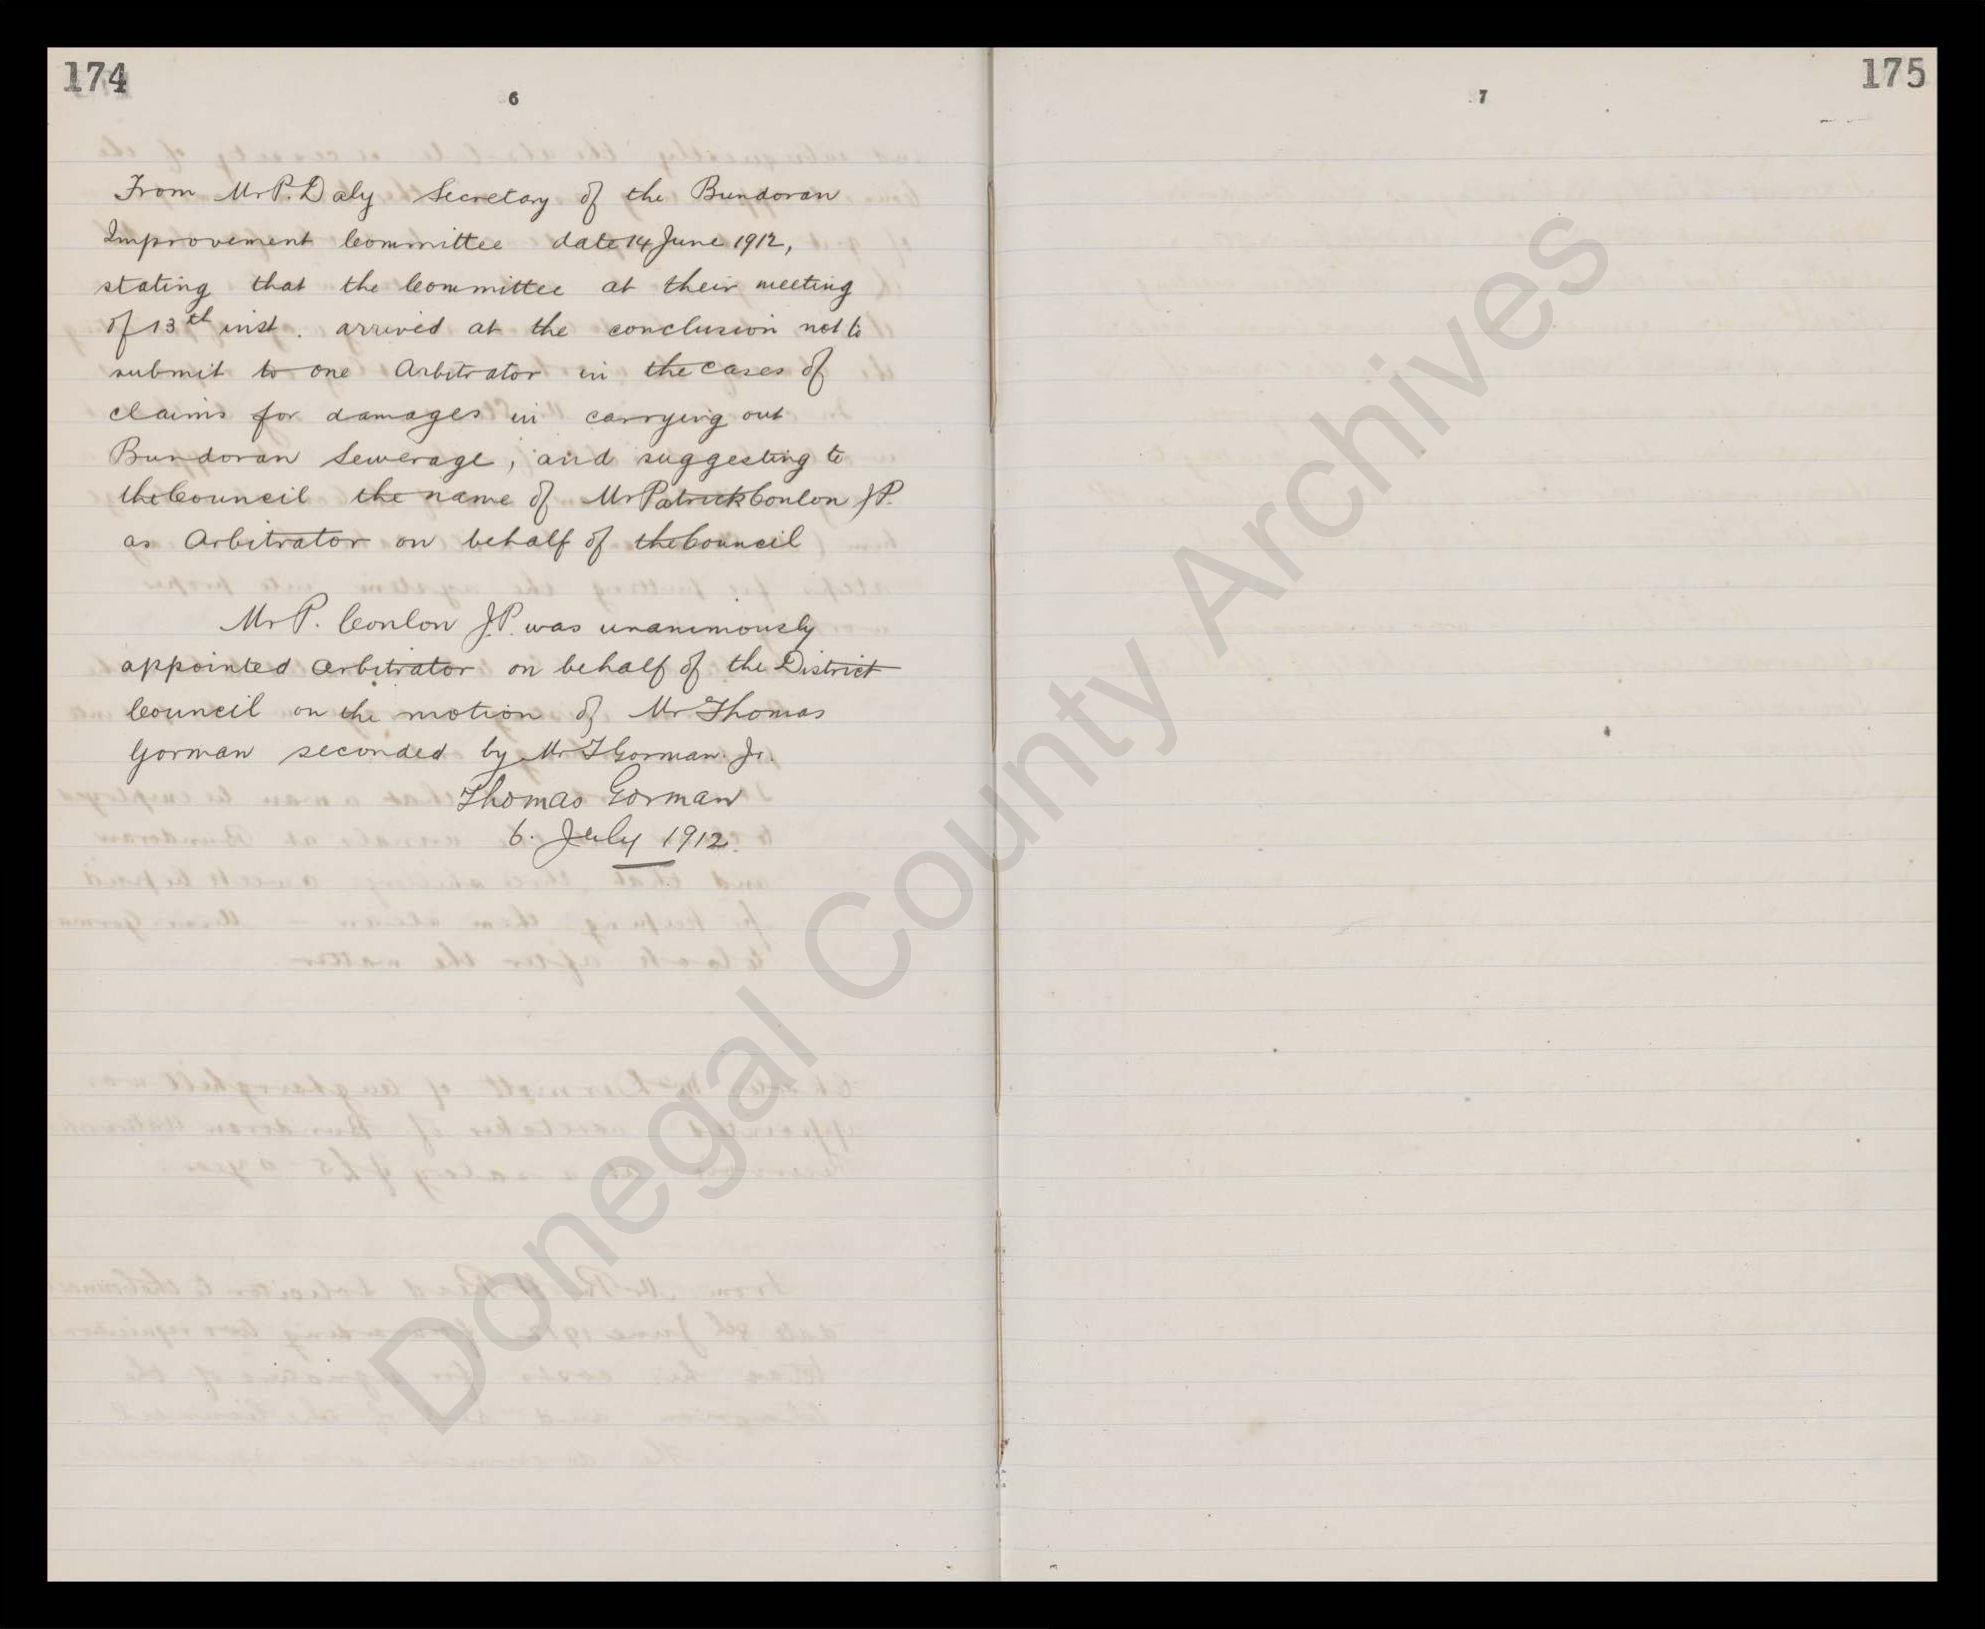 174
6
From Mr P. Daly Secretary of the Bundoran
Improvement Committee date 14 June 1912,
stating that the Committee at their meeting
of 13th inst. arrived at the conclusion not to
submit to one Arbitrator in the cases of
claims for damages in carrying out
Bundoran Sewerage, and suggesting to
the Council the name of Mr Patrick Conlon J.P.
as Arbitrator on behalf of the Council
Mr P. Conlon J.P. was unanimously
appointed Arbitrator on behalf of the District
Council on the motion of Mr Thomas
Gorman seconded by Mr T Gorman Jr.
Thomas Gorman
6. July 1912.
175
7
Donegal County Archives